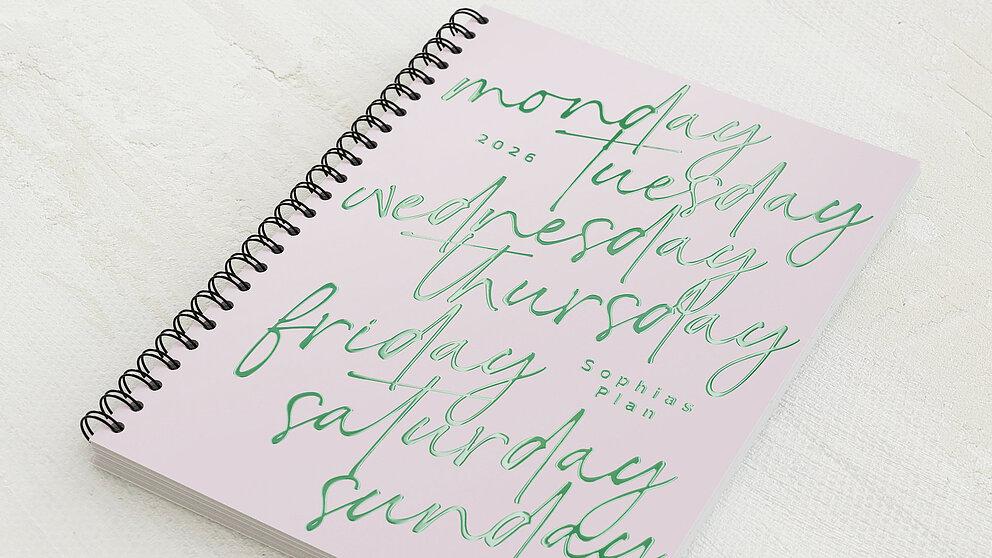 monday
2026
tuesday
wednesday
thursday
friday
Sophias
Plan
saturday
sunday